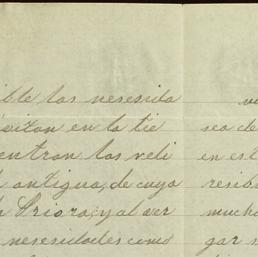 ible las nesesida
esitan en la tie
entran las reli
antigua, de cuya
Priora; y al ver
nesesidades como
sea de
en est
resib
mucho
gar s